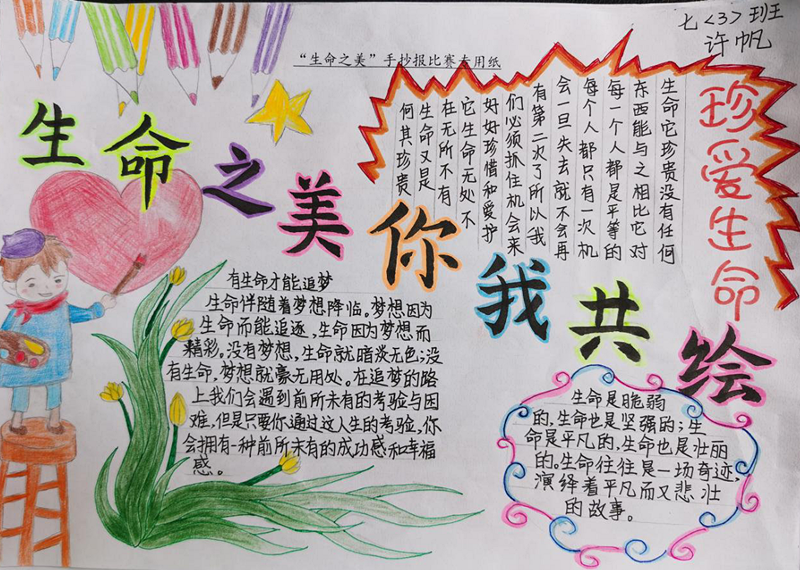 七<3>班
许帆
“生命之美”手抄报比赛专用纸
生命之美你我共绘
珍爱生命
生命它珍贵没有任何
东西能与之相比它对
每一个人都是平等的
每个人都只有一次机
会一旦失去就不会再
有第二次了所以我
们必须抓住机会来
好好珍惜和爱护
它生命无处不
在无所不有
生命又是
何其珍贵
有生命才能追梦
生命伴随着梦想降临。梦想因为
生命而能追逐,生命因为梦想而
精彩。没有梦想,生命就暗淡无色;没
有生命,梦想就毫无用处。在追梦的路
上我们会遇到前所未有的考验与困
难,但是只要你通过这人生的考验,你
会拥有一种前所未有的成功感和幸福
感。
生命是脆弱
的,生命也是坚强的;生
命是平凡的,生命也是壮丽
的。生命往往是一场奇迹,
演绎着平凡而又悲壮
的故事。